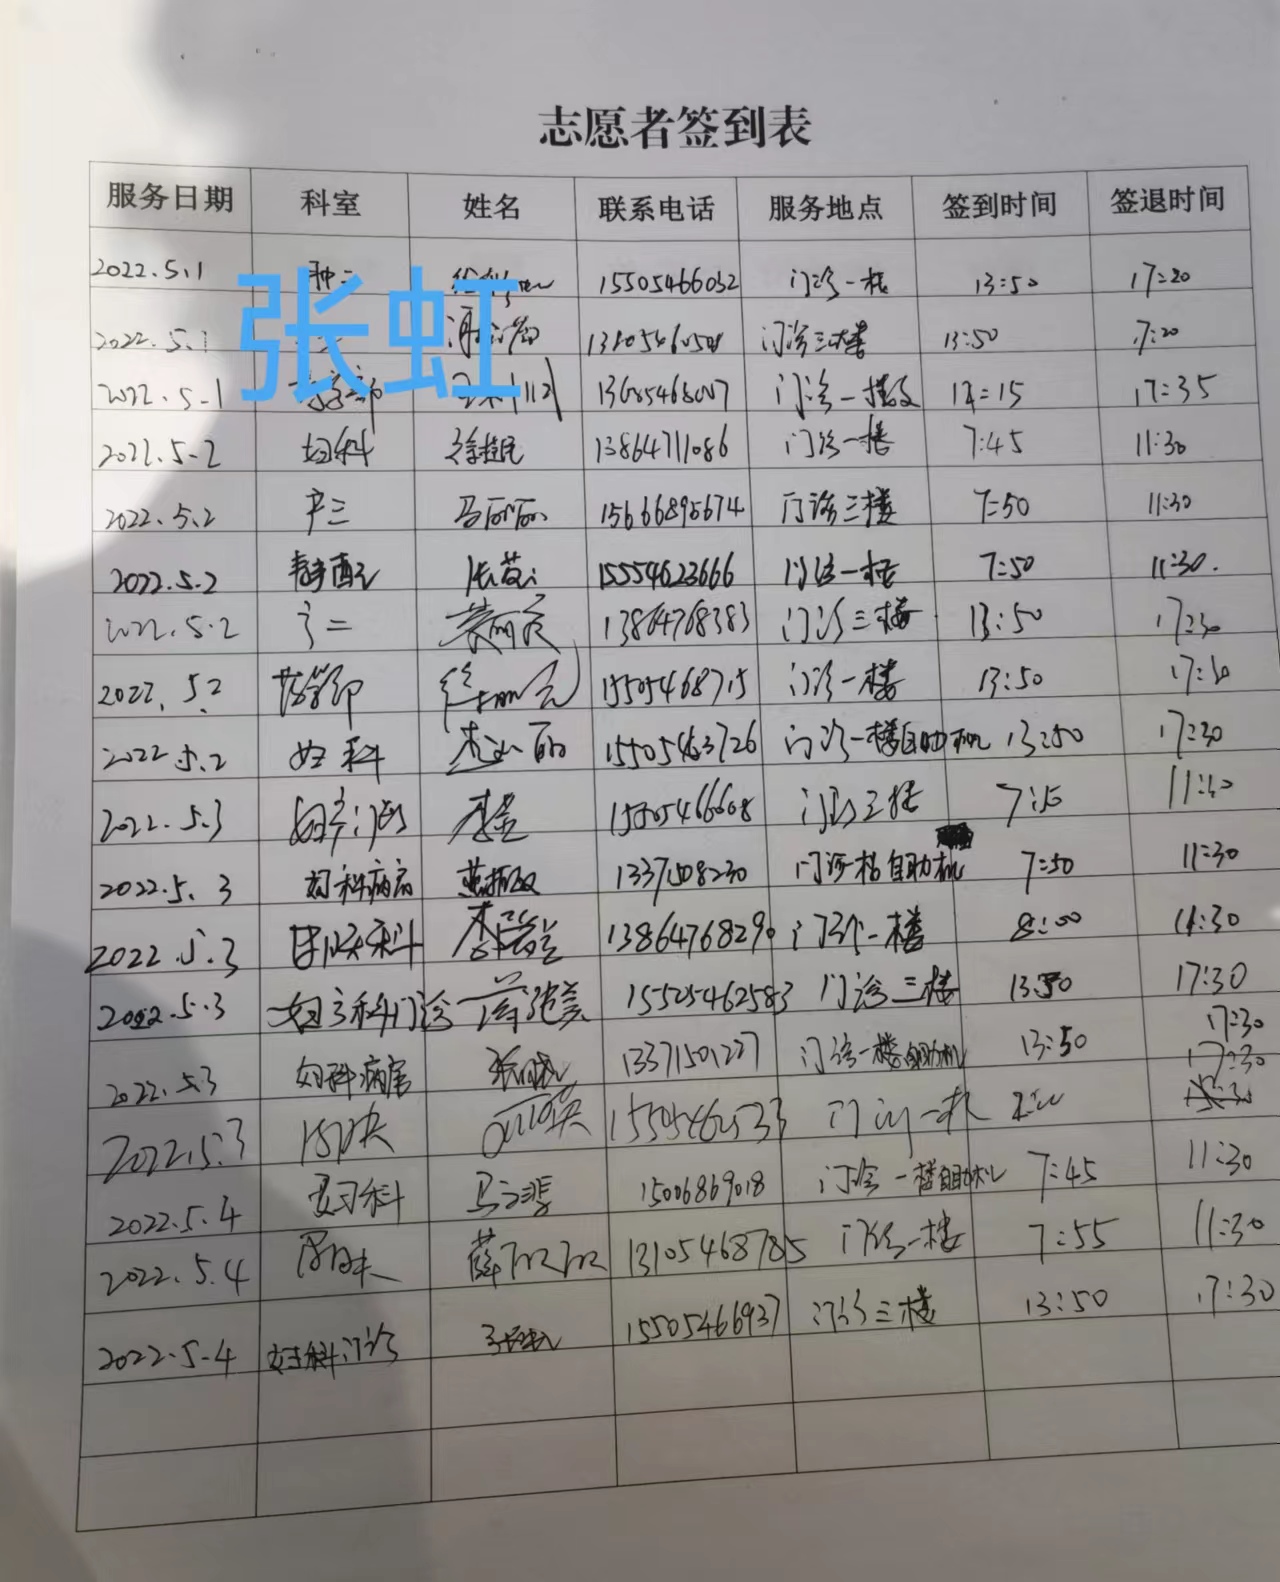 志愿者签到表
服务日期 科室 姓名 联系电话 服务地点 签到时间 签退时间
张虹
2022.5.1 15505466032 门诊一楼 13:50 17:20
2022.5.1 门诊三楼 13:50 17:20
2022.5-1 门诊一楼 17:35
2022.5-2 妇科 13864711086 门诊一楼 7:45 11:30
2022.5.2 产三 马丽丽 15666895674 门诊三楼 7:50 11:30
2022.5.2 静配 15554623666 门诊一楼 7:50 11:30.
2022.5.2 产二 13864768383 门诊三楼 13:50 17:30
2022.5.2 药学部 15505468715 门诊一楼 13:50 17:30
2022.5.2 妇科 15505463726 门诊一楼自助机 13:50 17:30
2022.5.3 妇产门诊 李堇 15505466608 门诊三楼 7:15
2022.5.3 妇科病房 1337508230 门诊一楼自助机 7:50 11:30
2022.5.3 13864768290 门诊一楼 8:00 11:30
2022.5.3 妇产科门诊 15505462583 门诊三楼 13:50 17:30
2022.5.3 妇科病房 13371501227 门诊一楼自助机 13:50 17:30
2022.5.3 15505462533 门诊一楼 17:30
2022.5.4 妇科 15006869018 门诊一楼自助机 7:45 11:30
2022.5.4 薛 13105468785 门诊一楼 7:55 11:30
2022.5-4 妇科门诊 15505466937 门诊三楼 13:50 17:30